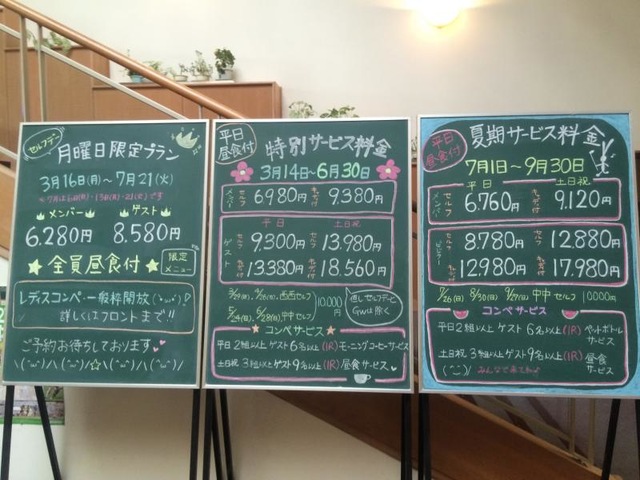 セルフデー
月曜日限定プラン
3月16日(月)～7月21(火)
メンバー
ゲスト
6.280円
8.580円
全員昼食付
限定
メニュー
レディスコンペ・一般枠開放
詳しくはフロントまで!!
ご予約お待ちしております
平日
昼食付
特別サービス料金
3月14～6月30日
メンバー
セルフ
6980円
キャディ付
9.380円
平日
土日祝
ゲスト
セルフ
9.300円
セルフ
13.980円
キャディ付
13380円
キャディ付
18.560円
10.000円
但しセルフデーと
GWは除く
コンペサービス
平日2組以上ゲスト6名以上(1R)モーニングコーヒーサービス
土日祝 3組以上ゲスト9名以上(1R)昼食サービス
平日
昼食付
夏期サービス料金
7月1日～9月30日
平日
土日祝
メンバー
セルフ
6.760円
キャディ付
9.120円
ビジター
セルフ
8.780円
セルフ
12.880円
キャディ付
12.980円
キャディ付
17.980円
7/26(日) 8/30(日) 9/27(日) 中中セルフ 10000円
コンペサービス
平日2組以上ゲスト6名以上(1R)ペットボトルサービス
土日祝 3組以上ゲスト9名以上(1R)昼食サービス
みんなで来てね